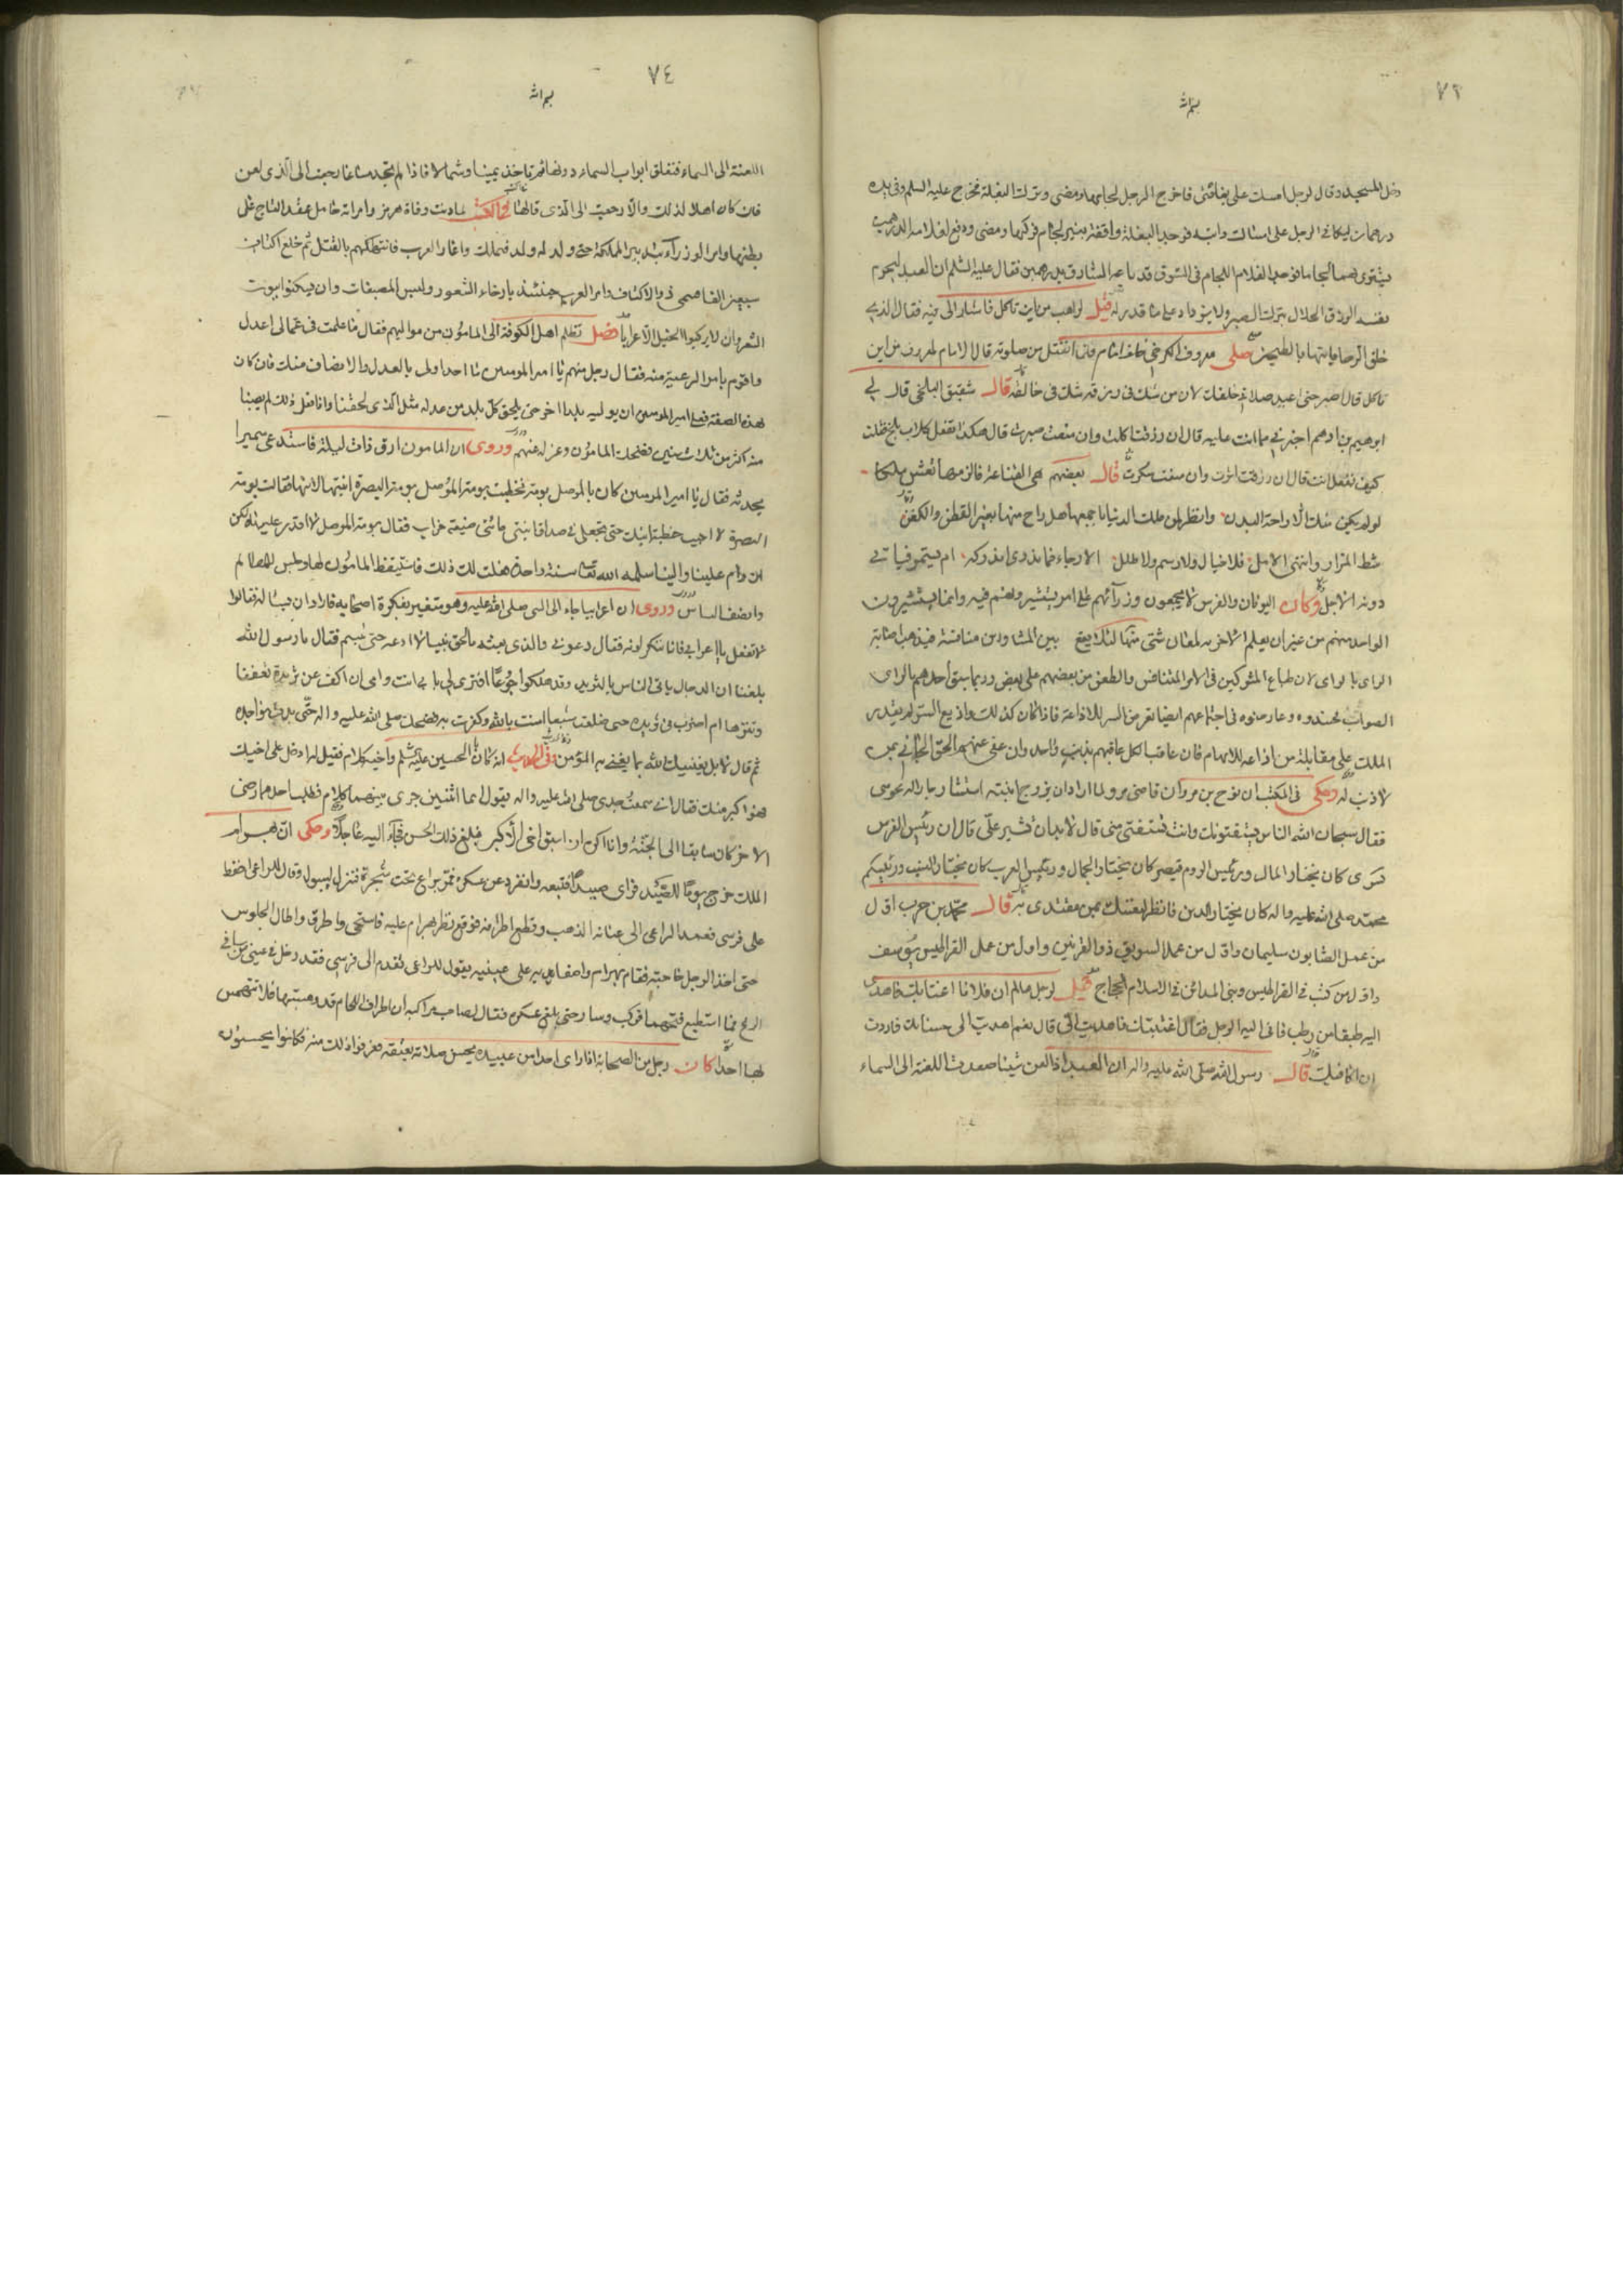 ٧٣
بسم الله
دخل المسجد وقال لرجل امسك على بغلتى فاخرج الرجل لجامها ومضى وترك البغلة فخرج عليه السلم وفى يده
درهمان ليكافى الرجل على امساك دابته فوجد البغلة واقفة بغير لجام فركبها ومضى ودفع لغلامه الدرهمين
يشترى بهما لجاما فوجد الغلام اللجام فى السوق قد باعه السارق بدرهمين فقال عليه السلم ان العبد ليحرم
نفسه الرزق الحلال بترك الصبر ولا يزداد على ما قدر له قيل لراهب من اين تاكل فاشار الى فيه فقال الذى
خلق الرحا ياتيها بالطحين صلى معروف الكرخى خلف امام فلما انفتل من صلوته قال الامام لمعروف من اين
تاكل قال اصبر حتى اعيد صلاتى خلفك لان من شك فى رزقه شك فى خالقه قال شقيق البلخى قال لى
ابرهيم بن ادهم اخبرنى عما انت عليه قال ان رزقت اكلت وان منعت صبرت قال هكذا تفعل كلاب بلخ فقلت
كيف تفعل انت قال ان رزقت اثرت وان منعت شكرت قال بعضهم هى القناعة فالزمها تعش ملكا
لو لم يكن منك الا راحة البدن وانظر لمن ملك الدنيا باجمعها هل راح منها بغير القطن والكفن
شط المزار وانتهى الامل فلا خيال ولا رسم ولا طلل الا رجاء فما ندرى اندركه ام يستمر فياتى
دونه الاجل وكان اليونان والفرس لا يجمعون وزرآئهم على امر يستشيرونهم فيه وانما يستشيرون
الواحد منهم من غير ان يعلم الاخر به لمعان شتى منها لئلا يقع بين المشاورين منافسة فيذهب اصابة
الراى بالراى لان طباع المشركين فى الامر المتنافس والطعن من بعضهم على بعض وربما سبق احدهم بالراى
الصواب فحسدوه وعارضوه فى اجتماعهم ايضا تعرض السر للاذاعة فاذا كان كذلك واذيع السر لم يقدر
الملك على مقابلة من اذاعه للابهام فان عاقب الكل عاقبهم بذنب واحد وان عفى عنهم الحق الجانى بمن
لا ذنب له وحكى فى الكتب ان نوح بن مروان قاضى مرو لما اراد ان يزوج ابنته استشار جارا له مجوسى
فقال سبحان الله الناس يستفتونك وانت تستفتى منى قال لا بد ان تشير على قال ان رئيس الفرس
كسرى كان يختار المال ورئيس الروم قيصر كان يختار الجمال ورئيس العرب كان يختار النسب ورئيسكم
محمد صلى الله عليه واله كان يختار الدين فانظر لنفسك بمن تقتدى به قال محمد بن حرب اول
من عمل الصابون سليمان واول من عمل السويق ذو القرنين واول من عمل القراطيس يوسف
واول من كتب فى القراطيس وبنى المدائن فى الاسلام الحجاج قيل لرجل عالم ان فلانا اغتابك فاهدى
اليه طبقا من رطب فاتى اليه الرجل فقال اغتبتك فاهديت الى قال نعم اهديت الى حسناتك فاردت
ان اكافيك قال رسول الله صلى الله عليه واله ان العبد اذا لعن شيئا صعدت اللعنة الى السماء
٧٤
بسم الله
اللعنة الى السماء فتغلق ابواب السماء دونها ثم تاخذ يمينا وشمالا فاذا لم تجد مساغا رجعت الى الذى لعن
فان كان اهلا لذلك والا رجعت الى الذى قالها لما دنت وفاة هرمز وامراته حامل عقد التاج على
بطنها وامر الوزرآء بتدبير المملكة حتى ولد له ولد فتملك واغار العرب فانتهكهم بالقتل ثم خلع اكتاف
سبعين الفا سمى ذو الاكتاف وامر العرب حينئذ بارخاء الشعور ولبس المصبغات وان يسكنوا بيوت
الشعر وان لا يركبوا الخيل الا عراة فصل تظلم اهل الكوفة الى المامون من موالهم فقال ما علمت فى عمالى اعدل
واقوم بامر الرعية منه فقال رجل منهم يا امير المومنين ما احد اولى بالعدل والانصاف منك فان كان
بهذه الصفة فعلى امير المومنين ان يوليه بلدا اخر حتى يلحق كل بلد من عدله مثل الذى لحقنا واذا فعل ذلك لم يصبنا
منه اكثر من ثلاث سنين فضحك المامون وعزله عنهم وروى ان المامون ارق ذات ليلة فاستدعى سميرا
يحدثه فقال يا امير المومنين كان بالموصل بومة فخطبت بومة الموصل بومة البصرة ابنتها لابنها فقالت بومة
البصرة لا اجيب خطبة ابنك حتى تجعلى فى صداق ابنتى مائتى ضيعة خراب فقال بومة الموصل لا اقدر عليها لكن
ان دام علينا والينا سلمه الله تعالى سنة واحدة فعلت لك ذلك فاستيقظ المامون لها وجلس للمظالم
وانصف الناس وروى ان اعرابيا جاء الى النبى صلى الله عليه وهو متغير ينكره اصحابه فاراد ان يساله فقالوا
لا تفعل يا اعرابى فانا ننكر لونه فقال دعونى فالذى بعثه بالحق نبيا لا ادعه حتى تبسم فقال يا رسول الله
بلغنا ان الدجال ياتى الناس بالثريد وقد هلكوا جوعا افترى لى بابى انت وامى ان اكف عن ثريده تعففا
وتنزها ام اضرب فى ثريده حتى ضلعت شبعا امنت بالله وكفرت به فضحك صلى الله عليه واله حتى بدت نواجذه
ثم قال لا بل يغنيك الله بما يغنى به المؤمن وفى الحديث انه كان بين الحسين عليه السلم واخيه كلام فقيل له ادخل على اخيك
فهو اكبر منك فقال انى سمعت جدى صلى الله عليه واله يقول ايما اثنين جرى بينهما كلام فطلب احدهما رضى
الاخر كان سابقا الى الجنة وانا اكره ان اسبق اخى الاكبر فبلغ ذلك الحسن فجآء اليه عاجلا وحكى ان بهرام
الملك خرج يوما للصيد فراى صيدا فتبعه وانفرد عن عسكره فمر براع تحت شجرة فنزل ليبول وقال للراعى احفظ
على فرسى فعمد الراعى الى عنانه الذهب وقطع اطرافه فوقع نظر بهرام عليه فاستحى واطرق واطال الجلوس
حتى اخذ الرجل حاجته فقام بهرام واضعا يديه على عينيه يقول للراعى تقدم الى فرسى فقد دخل فى عينى من سافى
الريح فما استطيع فتحهما فركب وسار حتى بلغ عسكره فقال لصاحب مراكبه ان اطراف اللجام قد وهبتها فلا تتهمن
بها احدا كان رجل من الصحابة اذا راى احدا من عبيده يحسن صلاته يعتقه فعرفوا ذلك منه فكانوا يحسنون